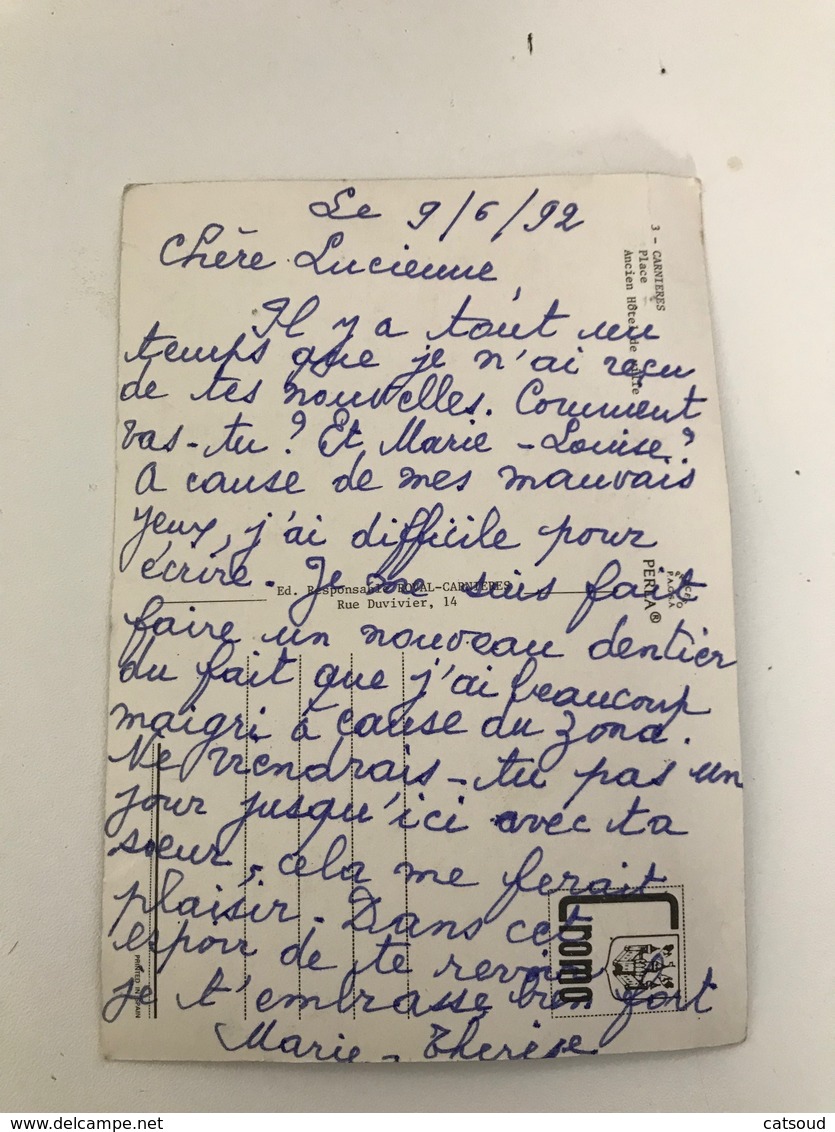 Le 9/6/92
Chère Lucienne,
Il y a tout un
temps que je n'ai reçu
de tes nouvelles. Comment
vas-tu ? Et Marie-Louise ?
A cause de mes mauvais
yeux, j'ai difficile pour
écrire. Je me suis fait
faire un nouveau dentier
du fait que j'ai beaucoup
maigri à cause du zona.
Ne viendrais-tu pas un
jour jusqu'ici avec ta
sœur, cela me ferait
plaisir. Dans cet
espoir de te revoir
je t'embrasse bien fort
Marie-Thérèse
3 - CARNIERES
Place
Ancien Hôtel de Ville
Ed. Responsable ROYAL-CARNIERES
Rue Duvivier, 14
PERLA®
PRINTED IN SPAIN
delcampe.net
catsoud